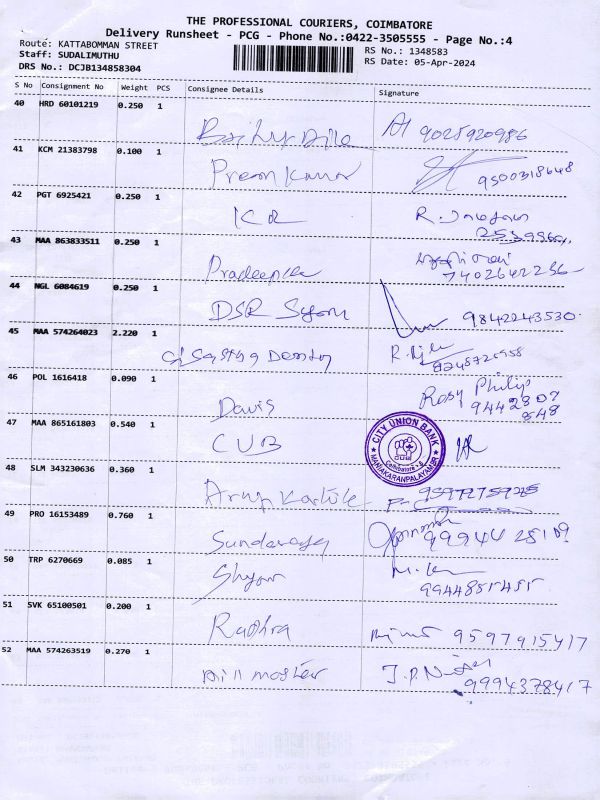 THE PROFESSIONAL COURIERS, COIMBATORE
Delivery Runsheet - PCG - Phone No.:0422-3505555 - Page No.:4
Route: KATTABOMMAN STREET
RS No.: 1348583
Staff: SUDALIMUTHU
RS Date: 05-Apr-2024
DRS No.: DCJB134858304
S No Consignment No Weight PCS Consignee Details Signature
40 HRD 60101219 0.250 1
9025920986
41 KCM 21383798 0.100 1
Prem Kumar 9500318648
42 PGT 6925421 0.250 1
KR R.
43 MAA 863833511 0.250 1
Pradeepka 7402642236
44 NGL 6084619 0.250 1
DSR Syam 9842243530
45 MAA 574264023 2.220 1
R. 8248721558
46 POL 1616418 0.090 1
Davis Rosy Philip
944280?
47 MAA 865161803 0.540 1
CUB CITY UNION BANK
MANIAKARANPALAYAM
Coimbatore - 6
48 SLM 343230636 0.360 1
Arup Kartik
49 PRO 16153489 0.760 1
Sundaraja 9994428109
50 TRP 6270669 0.085 1
Shyam 9944851451
51 SVK 65100501 0.200 1
Radhra 9597915417
52 MAA 574263519 0.270 1
Dill master J.P. 9994378417